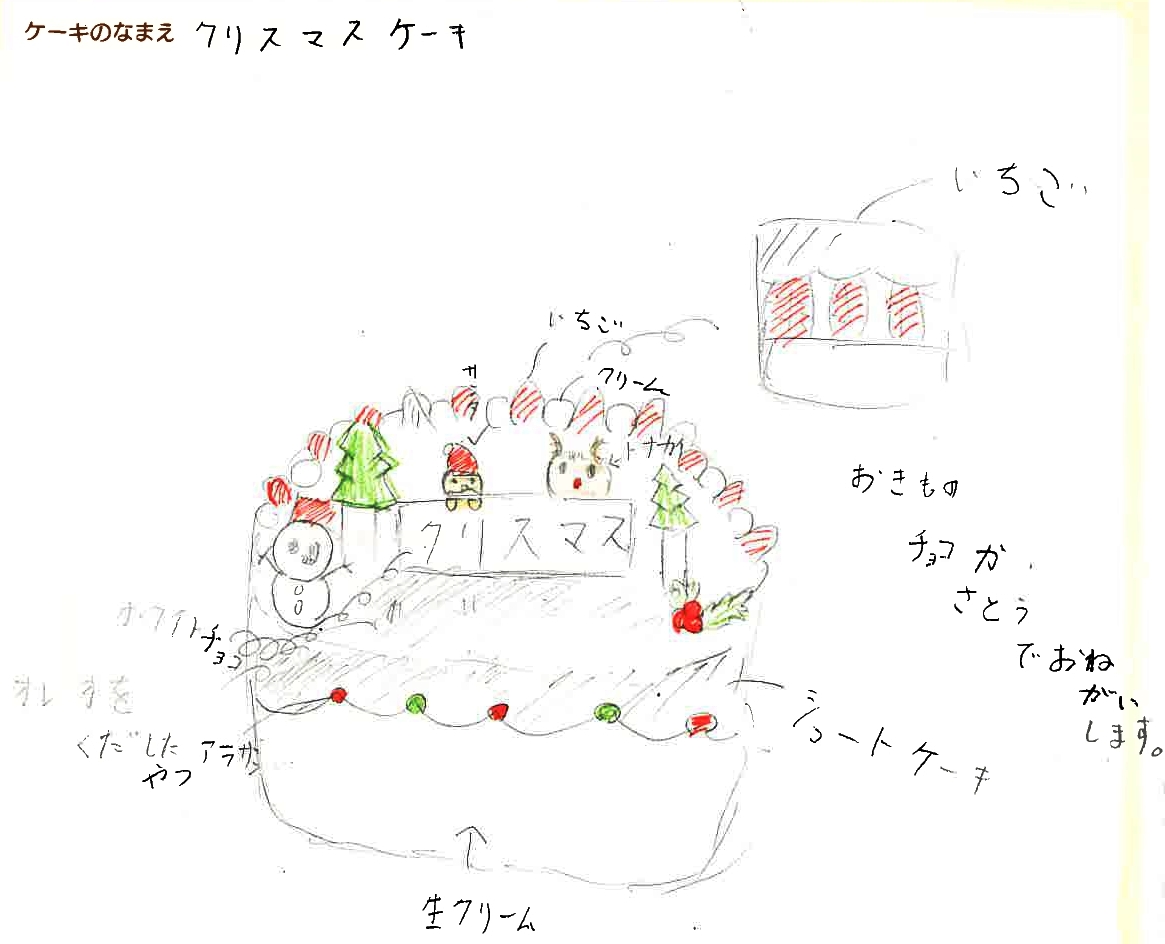 ケーキのなまえ クリスマスケーキ
いちご
いちご
クリーム
サンタ
トナカイ
クリスマス
おきもの
チョコか
さとう
でおね
がい
します。
ホワイトチョコ
を
くだいた
やつ
アラザン
ショートケーキ
生クリーム